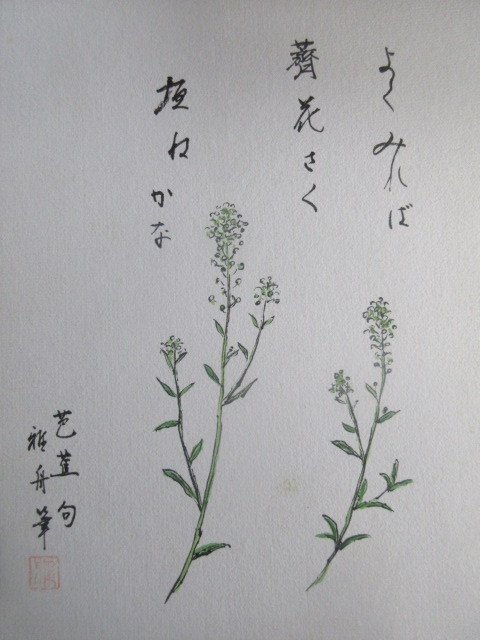 よくみれば
薺花さく
垣ねかな
芭蕉句
雅舟筆